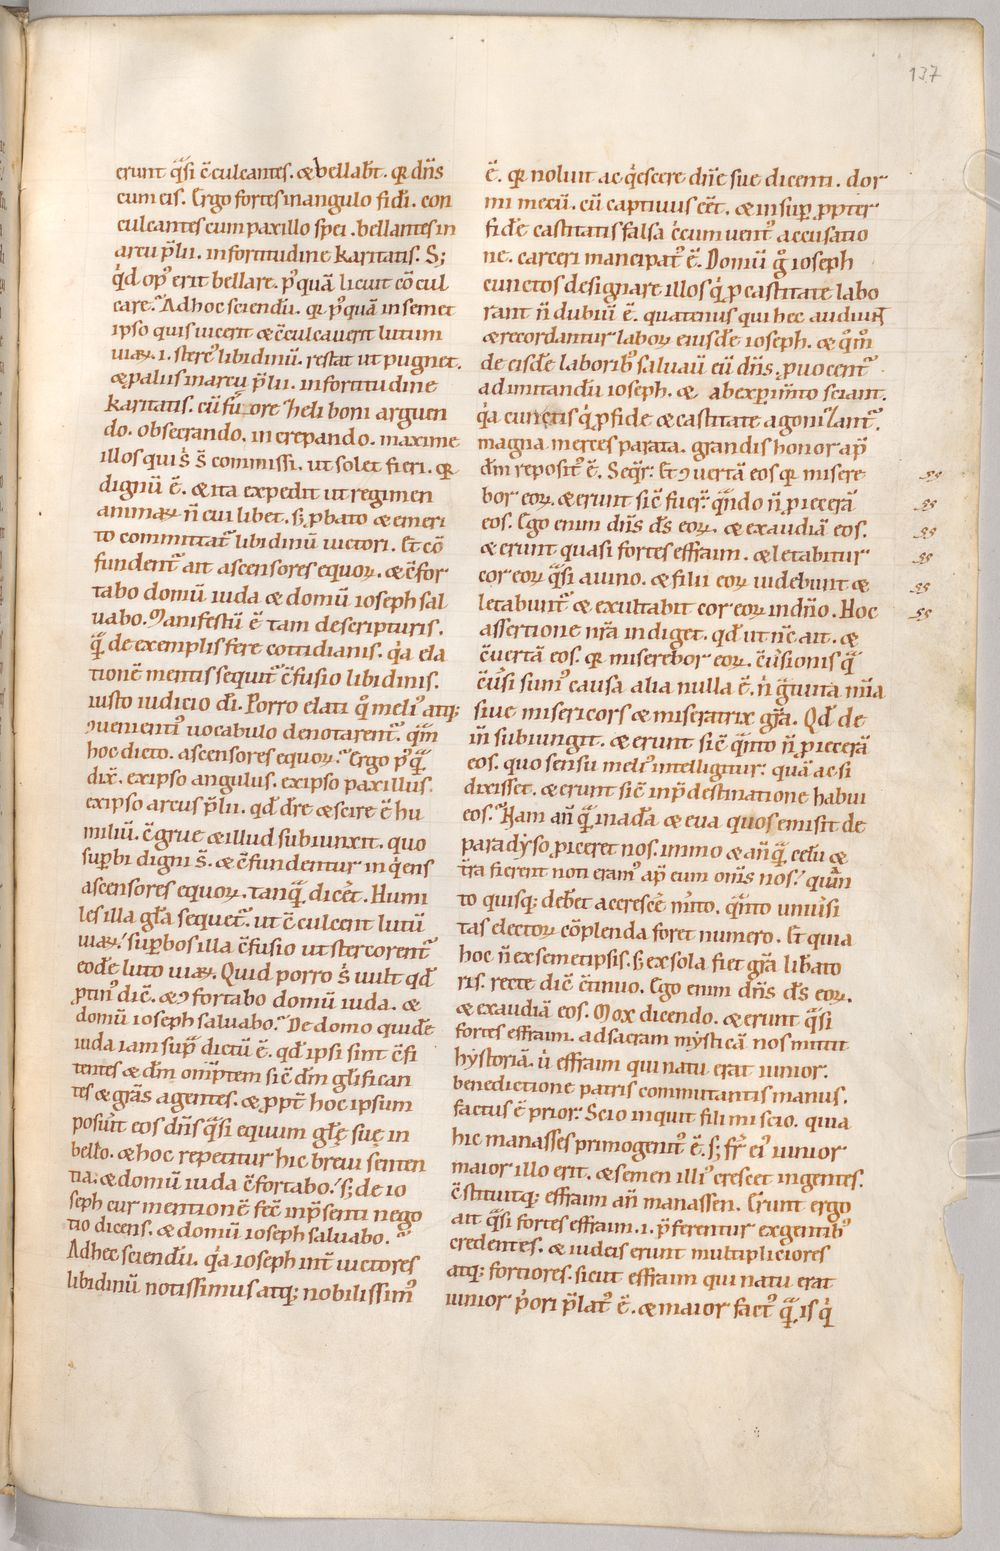 137
erunt q̃si c̄culcantes. & bellabt̄. qr dn̄s
cum eis. Ergo fortes in angulo fidei. con
culcantes cum paxillo spei. bellantes in
arcu p̄lii. in fortitudine karitatis. S;
q̇d op᷒ erit bellare. p᷒quā licuit cōcul
care? Ad hoc sciendū. qr p᷒quā in semet
ipso quis uicerit & c̄culcauerit lutum
uiaꝝ .i. sterc᷒ libidinū. restat ut pugnet.
& palus in arcu p̄lii. in fortitudine
karitatis. cū furore heli boni arguen
do. obsecrando. increpando. maxime
illos qui ṡ s̄ commissi. ut solet fieri. qr
dignū ē. & ita expedit ut regimen
animaꝝ n̄ cui libet. s; ꝓbato & emeri
to committat᷑ libidinū uictori. Et cō
fundent᷑ ait ascensores equoꝝ. & c̄for
tabo domū iuda & domū ioseph sal
uabo. Manifestū ē tam de scripturis.
q̃̄ de exemplis fere cottidianis. q̇a ela
tionē mentis sequit᷑ c̄fusio libidinis.
iusto iudicio dī. Porro elati q᷒ meli᷒ atq;
ꝯuenienti᷒ uocabulo denotarent᷑. q̄m
hoc dicto. ascensores equoꝝ? Ergo p᷒q̃̄
dix̄. ex ipso angulus. ex ipso paxillus.
ex ipso arcus p̄lii. qd̄ dr̄e & scire ē hu
miliū. c̄grue & illud subiunxit. quo
suꝑbi digni s̄. & c̄fundentur inq̇ens
ascensores equoꝝ. tanq̃̄ dicēt. Humi
les illa gr̄a sequet᷑. ut c̄culcent lutū
uiaꝝ. suꝑbos illa c̄fusio ut stercorent᷑
eodē luto uiaꝝ. Quid porro ṡ uult qd̄
ꝓtin᷒ dic̄. & ꝯfortabo domū iuda. &
domū ioseph saluabo? De domo quidē
iuda iam sup̄ dictū ē. qd̄ ipsi sint c̄fi
tentes & dm̄ omp̄tem sic̄ dm̄ glīfican
tes & gr̄as agentes. & ꝓpt̄ hoc ipsum
posuit eos dn̄s q̃si equum glę suę in
bello. & hoc repetitur hic breui senten
tia. & domū iuda c̄fortabo. S; de io
seph cur mentionē fec̄ in p̄senti nego
tio dicens. & domū ioseph saluabo?
Ad hec sciendū. q̇a ioseph int̄ uictores
libidinū notissimus atq; nobilissim᷒
ē. qr noluit acq̇escere dn̄e sue dicenti. dor
mi mecū. cū captiuus eēt. & insuꝑ ꝓpter
fidē castitatis falsa c̄cumuent᷒ accusatio
ne. carceri mancipat᷒ ē. Domū g̊ ioseph
cunctos designare illos q̇ ꝓ castitate labo
rant n̄ dubiū ē. quatenus qui hec audiunt
& recordantur laboꝝ eiusdē ioseph. & q̄m
de eisdē laborib᷒ saluauit eū dn̄s. ꝓuocent᷑
ad imitandū ioseph. & ab exꝑimto sciant.
q̇a cunctis q̇ ꝓ fide & castitate agonizant᷑.
magna merces parata. grandis honor ap̄
dm̄ reposit᷒ ē. Seqr̄. Et ꝯuertā eos qr misere
bor eoꝝ. & erunt sic̄ fuer̄. q̄ndo n̄ ꝓiecerā
eos. Ego enim dn̄s ds̄ eoꝝ. & exaudiā eos.
& erunt quasi fortes effraim. & letabitur
cor eoꝝ q̃si a uino. & filii eoꝝ uidebunt &
letabunt᷑ & exultabit cor eoꝝ in dn̄o. Hoc
assertione nr̄a indiget. qd̄ ut nc̄ ait. &
c̄uertā eos. qr miserebor eoꝝ. c̄u̇sionis q̃
c̄u̇si sum᷒ causa alia nulla ē. n̄ gtuita mīa
siue misericors & miseratrix gr̄a. Qd̄ de
in̄ subiungit. & erunt sic̄ q̄nto n̄ ꝓiecerā
eos. quo sensu meli᷒ intelligitur. quā ac si
dixisset. & erunt sic̄ in p̄destinatione habui
eos? Nam an̄ q̃̄ in adā & eua quos emisit de
paradẏso ꝓiceret nos. immo & an̄q̃̄ celū &
t̄ra fierent noti eram᷒ ap̄ eum om̄s nos. quan
to quisq; debet accresce᷑ m̄ito. q̄nto uniu̇si
tas electoꝝ cōplenda foret numero. Et quia
hoc n̄ ex semetipsis. s; ex sola fiet gr̄a libato
ris. recte dic̄ c̄tinuo. Ego enim dn̄s ds̄ eoꝝ.
& exaudiā eos. Mox dicendo. & erunt q̃si
fortes effraim. ad sacram mẏsticā nos mittit
hẏstoriā. u̇ effraim qui natu erat iunior.
benedictione patris commutantis manus.
factus ē prior. Scio inquit fili mi scio. quia
hic manasses primogenit᷒ ē. s; fr̄ ei᷒ iunior
maior illo erit. & semen illi᷒ crescet in gentes.
c̄stituitq; effraim an̄ manassen. Erunt ergo
ait q̃si fortes effraim .i. p̄ferentur ex gentib᷒
credentes. & iudeis erunt multipliciores
atq; fortiores. sicut effraim qui natu erat
iunior p̄ori p̄lat᷒ ē. & maior fact᷒ q̃̄ is q̇